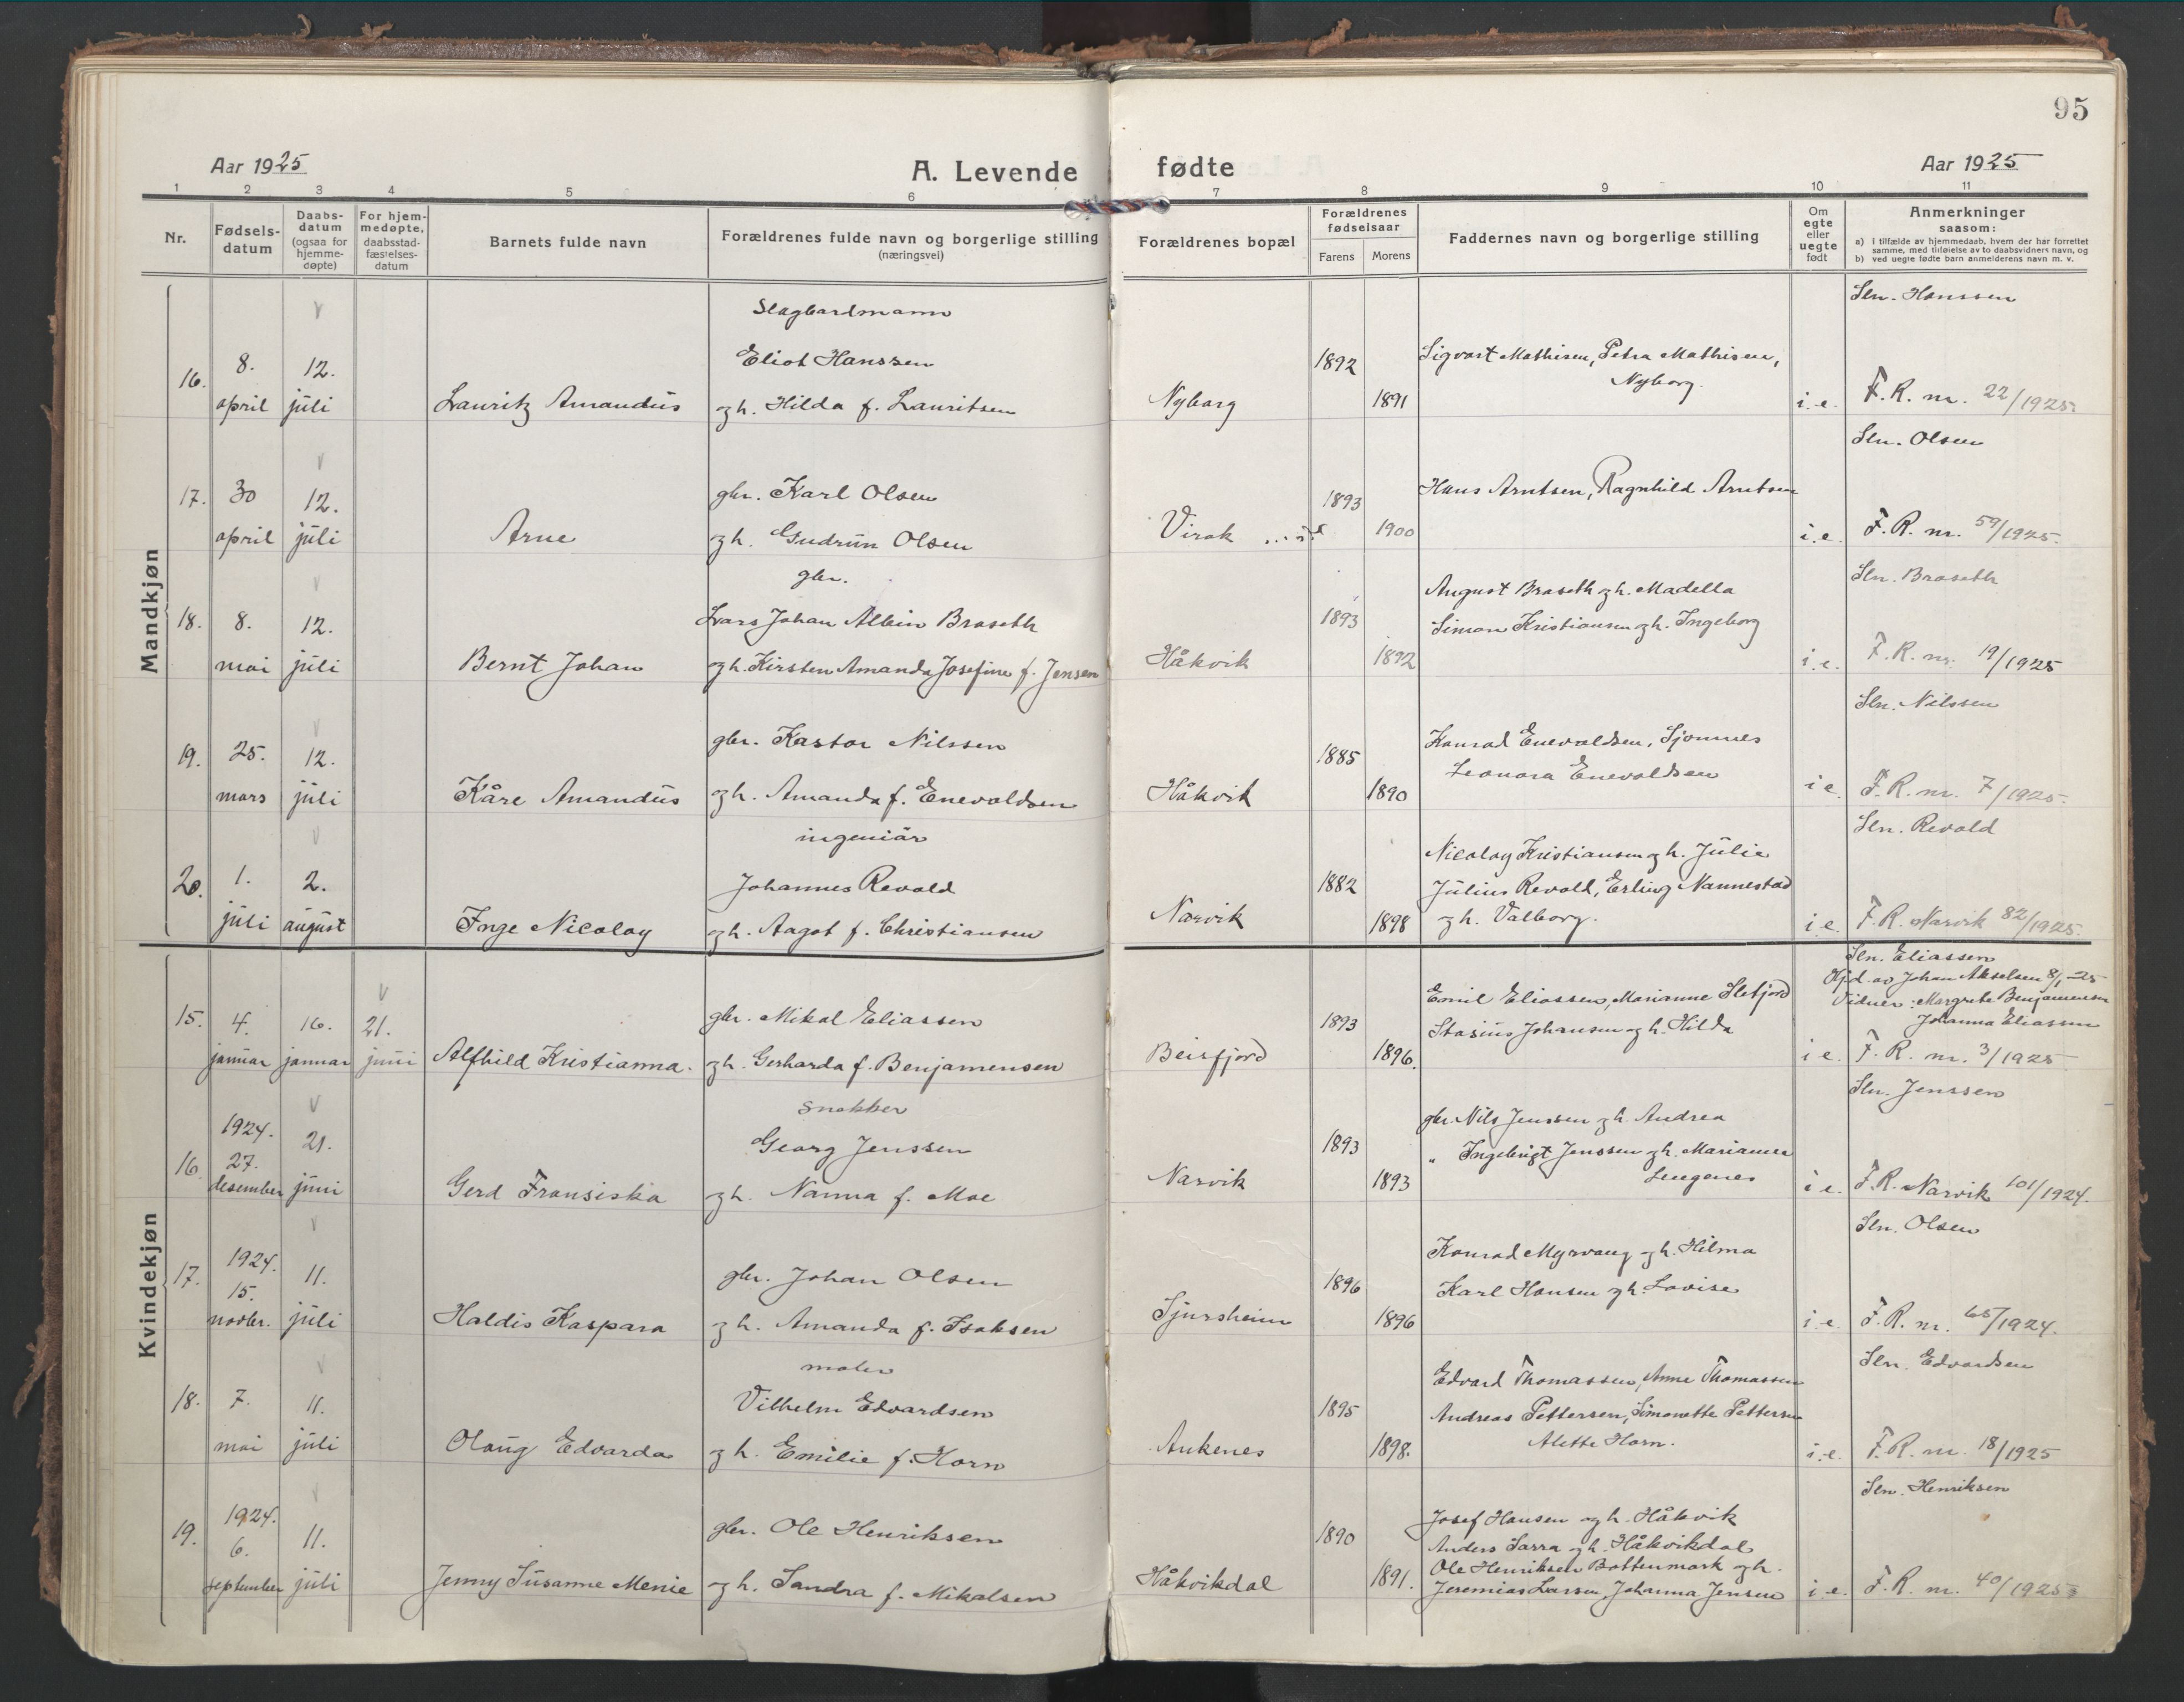 95
Aar 1925
A. Levende fødte
Aar 1925
1 2 3 4 5 6 7 8 9 10 11
Nr.
Fødsels-
datum
Daabs-
datum
(ogsaa for
hjemme-
døpte)
For hjem-
medøpte,
daabsstad-
fæstelses-
datum
Barnets fulde navn
Forældrenes fulde navn og borgerlige stilling
(næringsvei)
Forældrenes bopæl
Forældrenes
fødselsaar
Farens Morens
Faddernes navn og borgerlige stilling
Om
egte
eller
uegte
født
Anmerkninger
saasom:
a) i tilfælde av hjemmedaab, hvem der har forrettet
samme, med tilføielse av to daabsvidners navn, og
b) ved uegte fødte barn anmelderens navn m. v.
Mandkjøn
Slagbaslmann
Sln. Hanssen
16. 8. 12. Eliot Hanssen 1892 Sigvart Mathisen, Petra Mathisen,
Nyborg.
april juli Lauritz Amandus og h. Hilda f. Lauritsen Nyborg 1891 i.e. F. R. nr. 22/1925.
Sln. Olsen
17. 30 12. gbr. Karl Olsen 1893 Hans Arntsen, Ragnhild Arntsen
april juli Arne og h. Gudrun Olsen Virak 1900 i.e. F. R. nr. 59/1925.
gbr.
Sln. Braseth
18. 8. 12. Lars Johan Albin Braseth 1893 August Braseth og h. Madella
Simon Kristiansen og h. Ingeborg
mai juli Bernt Johan og h. Kirsten Amanda Josefine f. Jensen Håkvik 1892 i.e. F. R. nr. 19/1925
Sln. Nilssen
19. 25. 12. gbr. Kastor Nilssen 1885 Konrad Enevoldsen, Sjomnes
Leonora Enevoldsen
mars juli Kåre Amandus og h. Amanda f. Enevoldsen Håkvik 1890 i e. F. R. nr. 7/1925.
ingeniør
Sln. Revold
20. 1. 2. Johannes Revold 1882 Nicolay Kristiansen og h. Julie
Julius Revold, Erling Nannestad
juli august Inge Nicolay og h. Aagot f. Christiansen Narvik 1898 og h. Valborg. i.e. F. R. Narvik 82/1925.
Kvindekjøn
Sln. Eliassen
Hjd. av Johan Akselsen 8/1-25
Vidner: Margrete Benjaminsen
Johanna Eliassen
15. 4. 16. 21. gbr. Mikal Eliassen 1893 Emil Eliassen, Marianne Sletfjord
Stasius Johansen og h. Hilda
januar januar juni Alfhild Kristianna. og h. Gerharda f. Benjamensen Beisfjord 1896. i e. F. R. nr. 3/1925
snekker
Sln. Jenssen
16. 1924. 27. 21. Georg Jenssen 1893 gbr. Nils Jenssen og h. Andrea
" Ingebrigt Jenssen og h. Marianna
Lengenes
desember juni Gerd Fransiska og h. Nanna f. Moe Narvik 1893 i e. F. R. Narvik 101/1924.
Sln. Olsen
17. 1924. 15. 11. gbr. Johan Olsen 1896 Konrad Myrvang og h. Hilma
Karl Hansen og h. Lovise
novbr. juli Haldis Kaspara og h. Amanda f. Isaksen Sjursheim 1896 i e. F. R. nr. 65/1924.
maler
Sln. Edvardsen
18. 7. 11. Vilhelm Edvardsen 1895 Edvard Thomassen, Anne Thomassen
Andreas Pettersen, Simonette Pettersen
Alette Horn.
mai juli Olaug Edvarda og h. Emilie f. Horn Ankenes 1898. i.e. F. R. nr. 18/1925
Sln. Henriksen
19. 1924. 6. 11. gbr. Ole Henriksen 1890 Josef Hansen og h. Håkvik
Anders Sarra og h. Håkvikdal
Ole Henriksen Bottenmark og h.
september juli Jenny Susanne Menie og h. Sandra f. Mikalsen Håkvikdal 1891. Jeremias Larsen, Johanna Jensen i e. F. R. nr. 40/1925